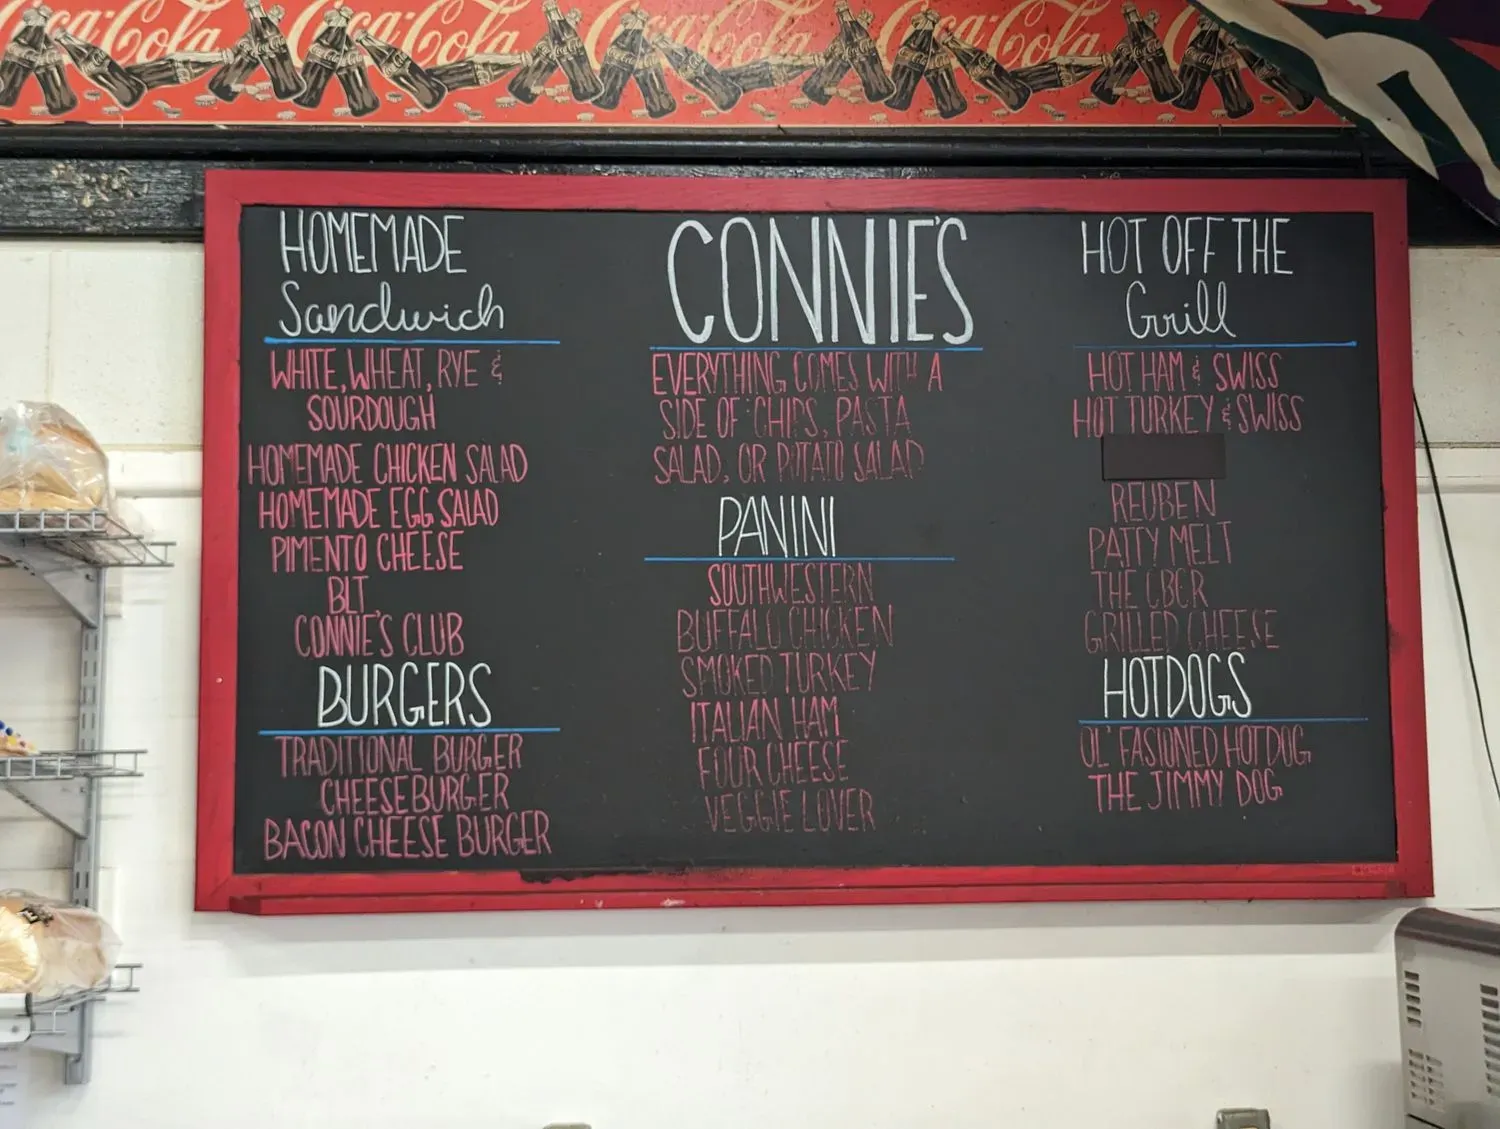 Coca-Cola Coca-Cola Coca-Cola Coca-Cola Coca-Cola
HOMEMADE
Sandwich
WHITE, WHEAT, RYE &
SOURDOUGH
HOMEMADE CHICKEN SALAD
HOMEMADE EGG SALAD
PIMENTO CHEESE
BLT
CONNIE'S CLUB
BURGERS
TRADITIONAL BURGER
CHEESEBURGER
BACON CHEESE BURGER
CONNIE'S
EVERYTHING COMES WITH A
SIDE OF CHIPS, PASTA
SALAD, OR POTATO SALAD
PANINI
SOUTHWESTERN
BUFFALO CHICKEN
SMOKED TURKEY
ITALIAN HAM
FOUR CHEESE
VEGGIE LOVER
HOT OFF THE
Grill
HOT HAM & SWISS
HOT TURKEY & SWISS
REUBEN
PATTY MELT
THE CBCR
GRILLED CHEESE
HOTDOGS
OL' FASIONED HOTDOG
THE JIMMY DOG